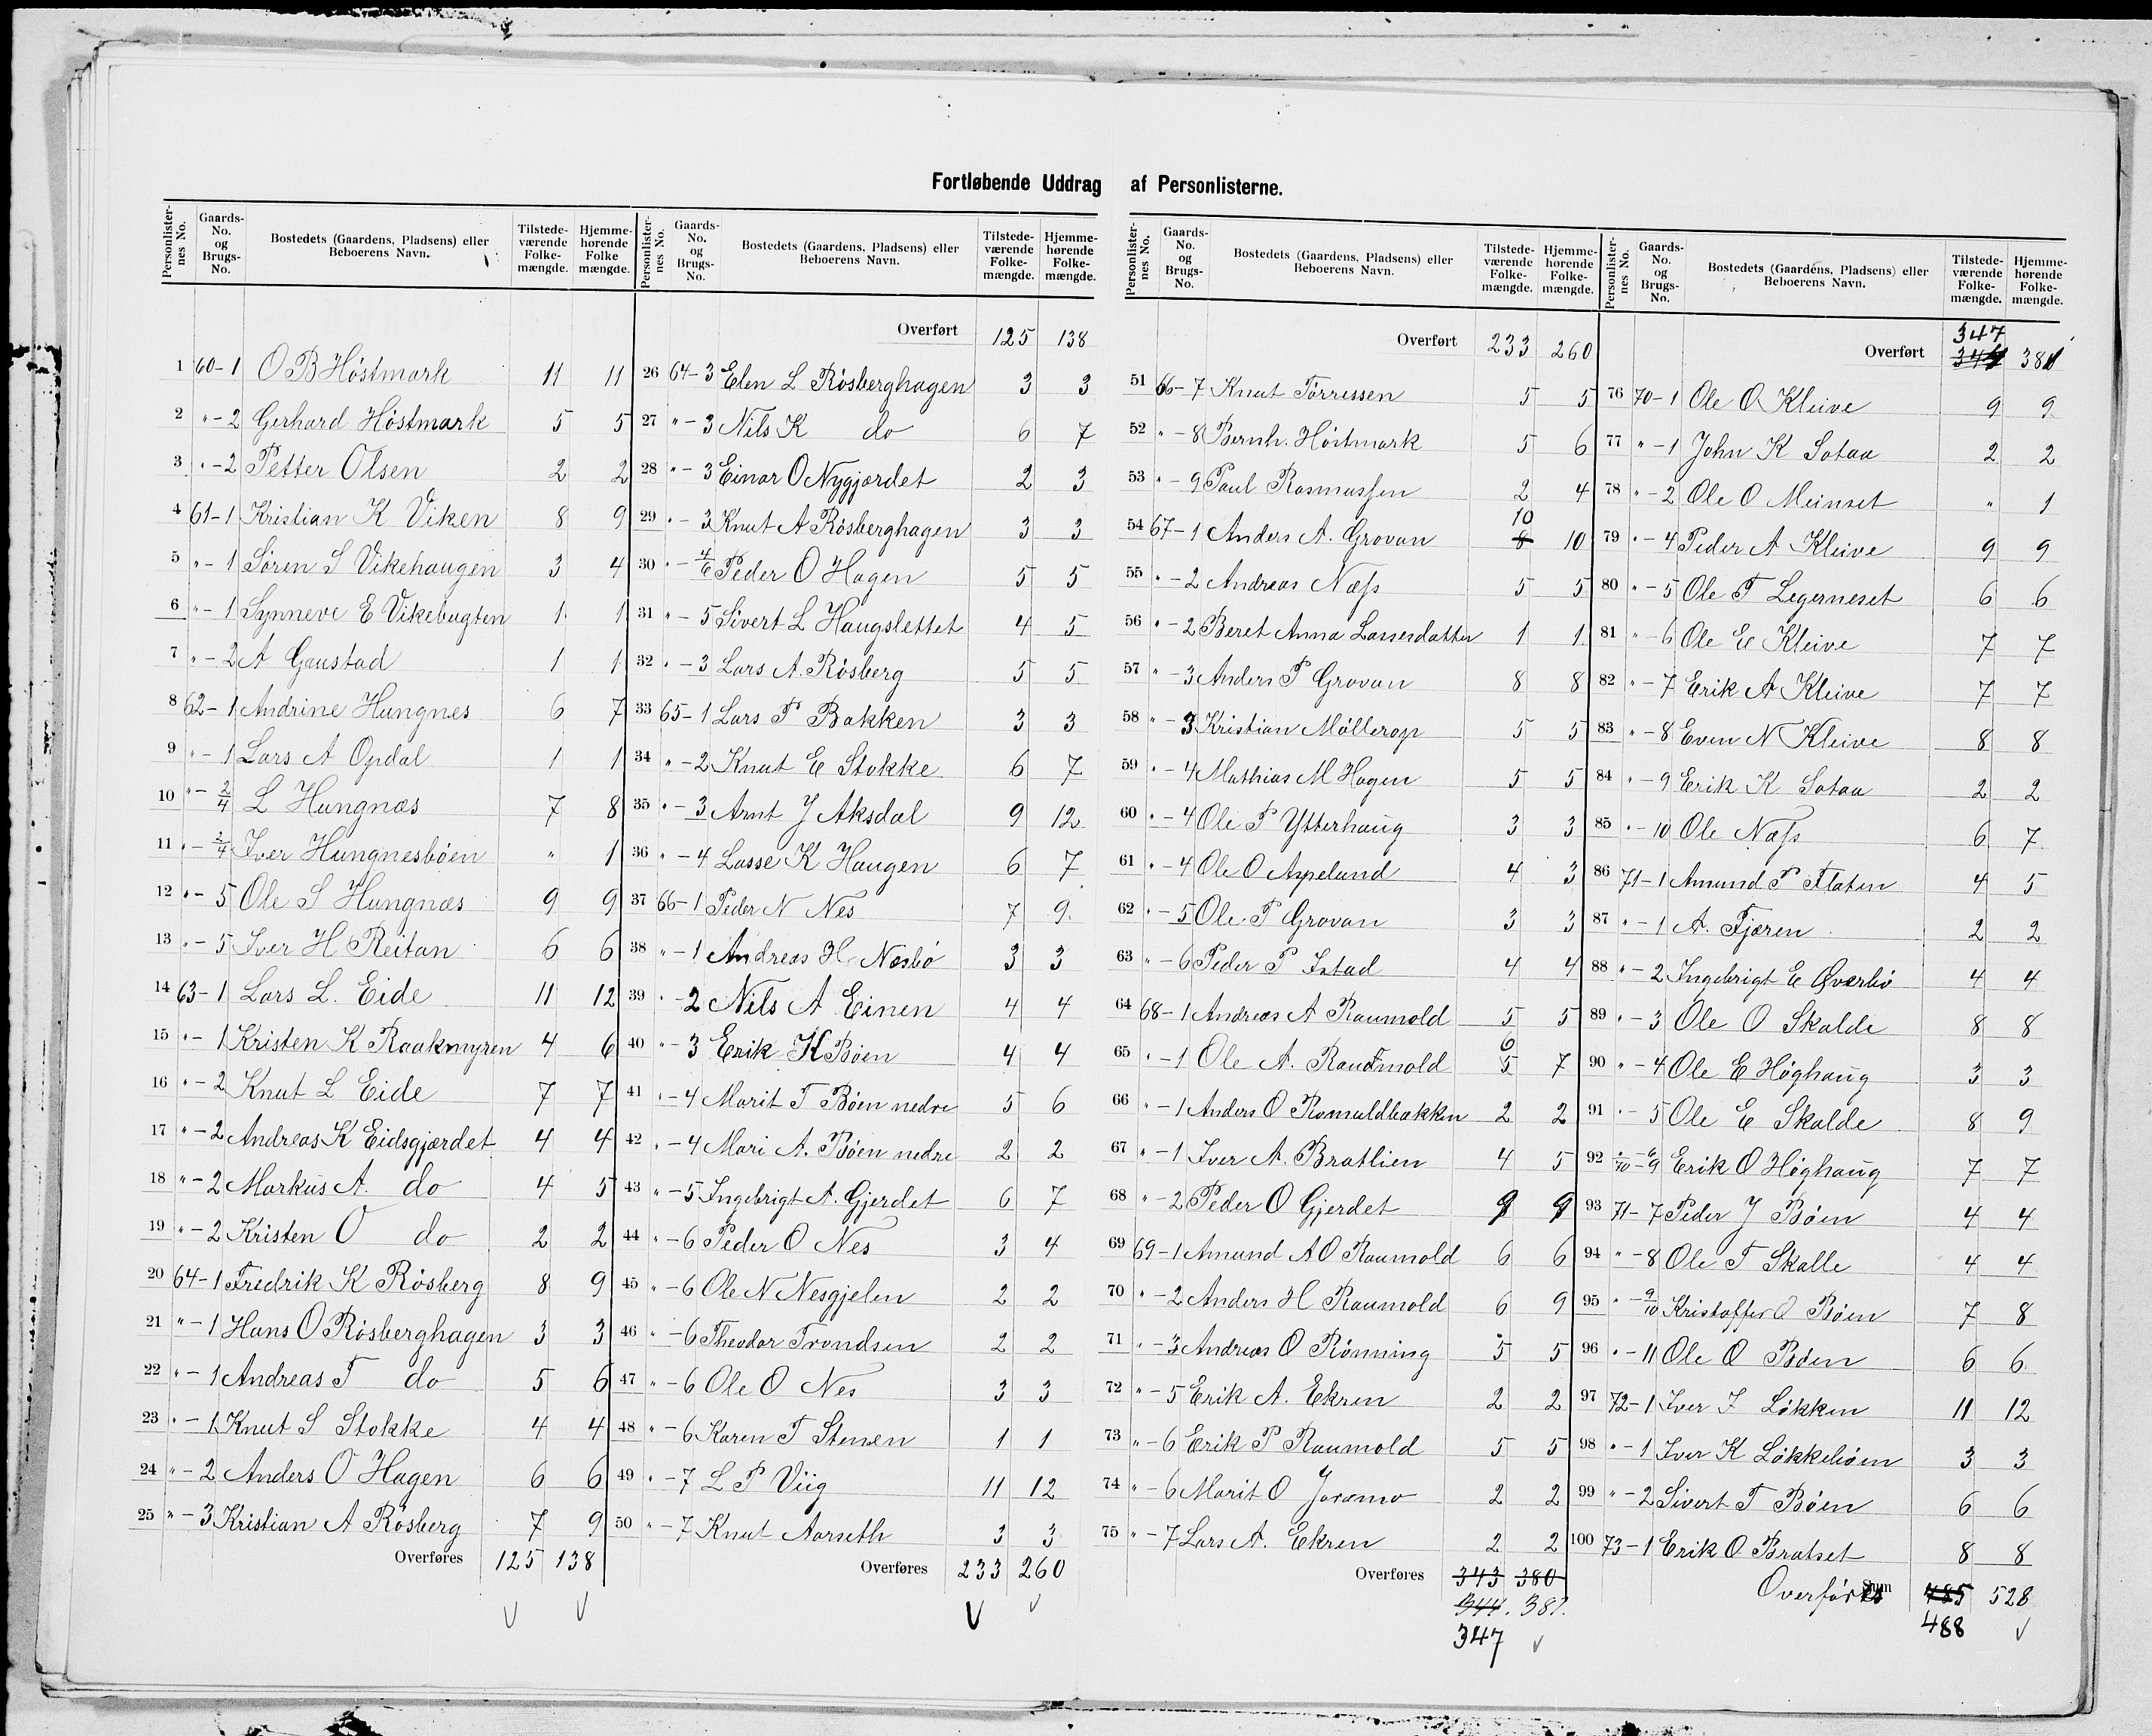 Fortløbende Uddrag af Personlisterne.
Personlisternes No. Gaards-No. og Brugs-No. Bostedets (Gaardens, Pladsens) eller Beboerens Navn. Tilstedeværende Folkemængde. Hjemmehørende Folkemængde.
1 60-1 O B Höstmark 11 11
2 "-2 Gerhard Höstmark 5 5
3 "-2 Petter Olsen 2 2
4 61-1 Kristian K Viken 8 9
5 "-1 Sören S Vikehaugen 3 4
6 "-1 Synneve E Vikebugten 1 1
7 "-2 A Gaustad 1 1
8 62-1 Andrine Hungnes 6 7
9 "-1 Lars A Opdal 1 1
10 "-2/4 L Hungnæs 7 8
11 "-2/4 Iver Hungnesböen " 1
12 "-5 Ole S Hungnæs 9 9
13 "-5 Iver H Reitan 6 6
14 63-1 Lars L. Eide 11 12
15 "-1 Kristen K Raakmyren 4 6
16 "-2 Knut L Eide 7 7
17 "-2 Andreas K Eidsgjærdet 4 4
18 "-2 Markus A. do 4 5
19 "-2 Kristen O do 2 2
20 64-1 Fredrik K Rösberg 8 9
21 "-1 Hans O Rösberghagen 3 3
22 "-1 Andreas T do 5 6
23 "-1 Knut S Stokke 4 4
24 "-2 Anders O Hagen 6 6
25 "-3 Kristian A Rösberg 7 9
Overføres 125 138
Personlisternes No. Gaards-No. og Brugs-No. Bostedets (Gaardens, Pladsens) eller Beboerens Navn. Tilstedeværende Folkemængde. Hjemmehørende Folkemængde.
Overført 125 138
26 64-3 Elen L Rösberghagen 3 3
27 "-3 Nils K do 6 7
28 "-3 Einar O Nygjærdet 2 3
29 "-3 Knut A Rösberghagen 3 3
30 "-4/6 Peder O Hagen 5 5
31 "-5 Sivert L Haugslettet 4 5
32 "-3 Lars A. Rösberg 5 5
33 65-1 Lars P Bakken 3 3
34 "-2 Knut E Stokke 6 7
35 "-3 Arnt J Aksdal 9 12
36 "-4 Lasse K Haugen 6 7
37 66-1 Peder N Nes 7 9
38 "-1 Andreas H. Nesbö 3 3
39 "-2 Nils A Einen 4 4
40 "-3 Erik K Böen 4 4
41 "-4 Marit T Böen nedre 5 6
42 "-4 Mari A. Böen nedre 2 2
43 "-5 Ingebrigt A. Gjerdet 6 7
44 "-6 Peder O Nes 3 4
45 "-6 Ole N Nesgjelen 2 2
46 "-6 Theodor Trondsen 2 2
47 "-6 Ole O Nes 3 3
48 "-6 Karen T Stenen 1 1
49 "-7 L P Viig 11 12
50 "-7 Knut Aarseth 3 3
Overføres 233 260
Personlisternes No. Gaards-No. og Brugs-No. Bostedets (Gaardens, Pladsens) eller Beboerens Navn. Tilstedeværende Folkemængde. Hjemmehørende Folkemængde.
Overført 233 260
51 66-7 Knut Törressen 5 5
52 "-8 Bernh. Höstmark 5 6
53 "-9 Paul Rasmussen 2 4
10
54 67-1 Anders A. Grovan 8 10
55 "-2 Andreas Næss 5 5
56 "-2 Beret Anna Larsesdatter 1 1
57 "-3 Anders P Grovan 8 8
58 "-3 Kristian Möllerop 5 5
59 "-4 Mathias M Hagen 5 5
60 "-4 Ole P Ytterhaug 3 3
61 "-4 Ole O Aspelund 4 3
62 "-5 Ole P Grovan 3 3
63 "-6 Peder P Istad 4 4
64 68-1 Andreas A Raumold 5 5
6
65 "-1 Ole A. Raumold 5 7
66 "-1 Anders O Romuldbakken 2 2
67 "-1 Iver A. Bratlien 4 5
68 "-2 Peder O Gjerdet 9 9
69 69-1 Amund A O Raumold 6 6
70 "-2 Anders H Raumold 6 9
71 "-3 Andreas O Rönning 5 5
72 "-5 Erik A. Ekren 2 2
73 "-6 Erik P Raumold 5 5
74 "-6 Marit O Joramo 2 2
75 "-7 Lars A. Ekren 2 2
Overføres 343 380
344. 381.
347
Personlisternes No. Gaards-No. og Brugs-No. Bostedets (Gaardens, Pladsens) eller Beboerens Navn. Tilstedeværende Folkemængde. Hjemmehørende Folkemængde.
347
Overført 344 381
76 70-1 Ole O Kleive 9 9
77 "-1 John K Sotaa 2 2
78 "-2 Ole O Meinset " 1
79 "-4 Peder A Kleive 9 9
80 "-5 Ole T Legerneset 6 6
81 "-6 Ole E Kleive 7 7
82 "-7 Erik A Kleive 7 7
83 "-8 Even N Kleive 8 8
84 "-9 Erik K Sotaa 2 2
85 "-10 Ole Næss 6 7
86 71-1 Amund P Flaten 4 5
87 "-1 A. Fjæren 2 2
88 "-2 Ingebrigt E Överbö 4 4
89 "-3 Ole O Skalde 8 8
90 "-4 Ole E Höghaug 3 3
91 "-5 Ole E Skalde 8 9
92 "/70-6/9 Erik O Höghaug 7 7
93 71-7 Peder J Böen 4 4
94 "-8 Ole T Skalle 4 4
95 "-9/10 Kristoffer O Böen 7 8
96 "-11 Ole O Böen 6 6
97 72-1 Iver I Lökken 11 12
98 "-1 Iver K Lökkeböen 3 3
99 "-2 Sivert T Böen 6 6
100 73-1 Erik O Bratset 8 8
Sum Overføres 485 528
488